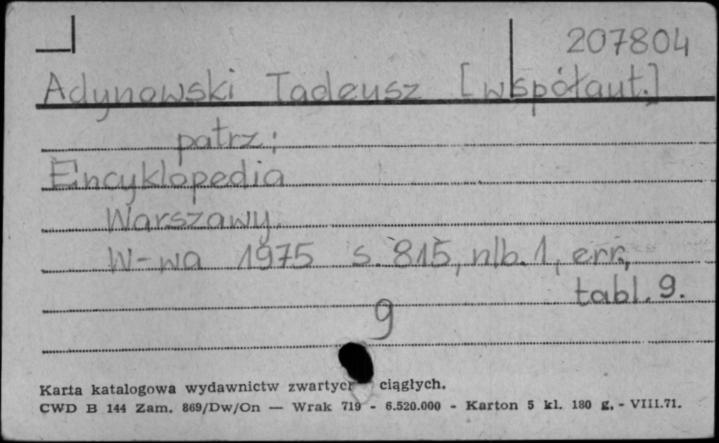 207804
Adynowski Tadeusz [współaut.]
patrz:
Encyklopedia
Warszawy.
W-wa 1975 s. 815, nlb. 1, err.,
tabl. 9.
9
Karta katalogowa wydawnictw zwartych ciągłych.
CWD B 144 Zam. 869/Dw/On — Wrak 719 - 6.520.000 - Karton 5 kl. 180 g. - VIII.71.